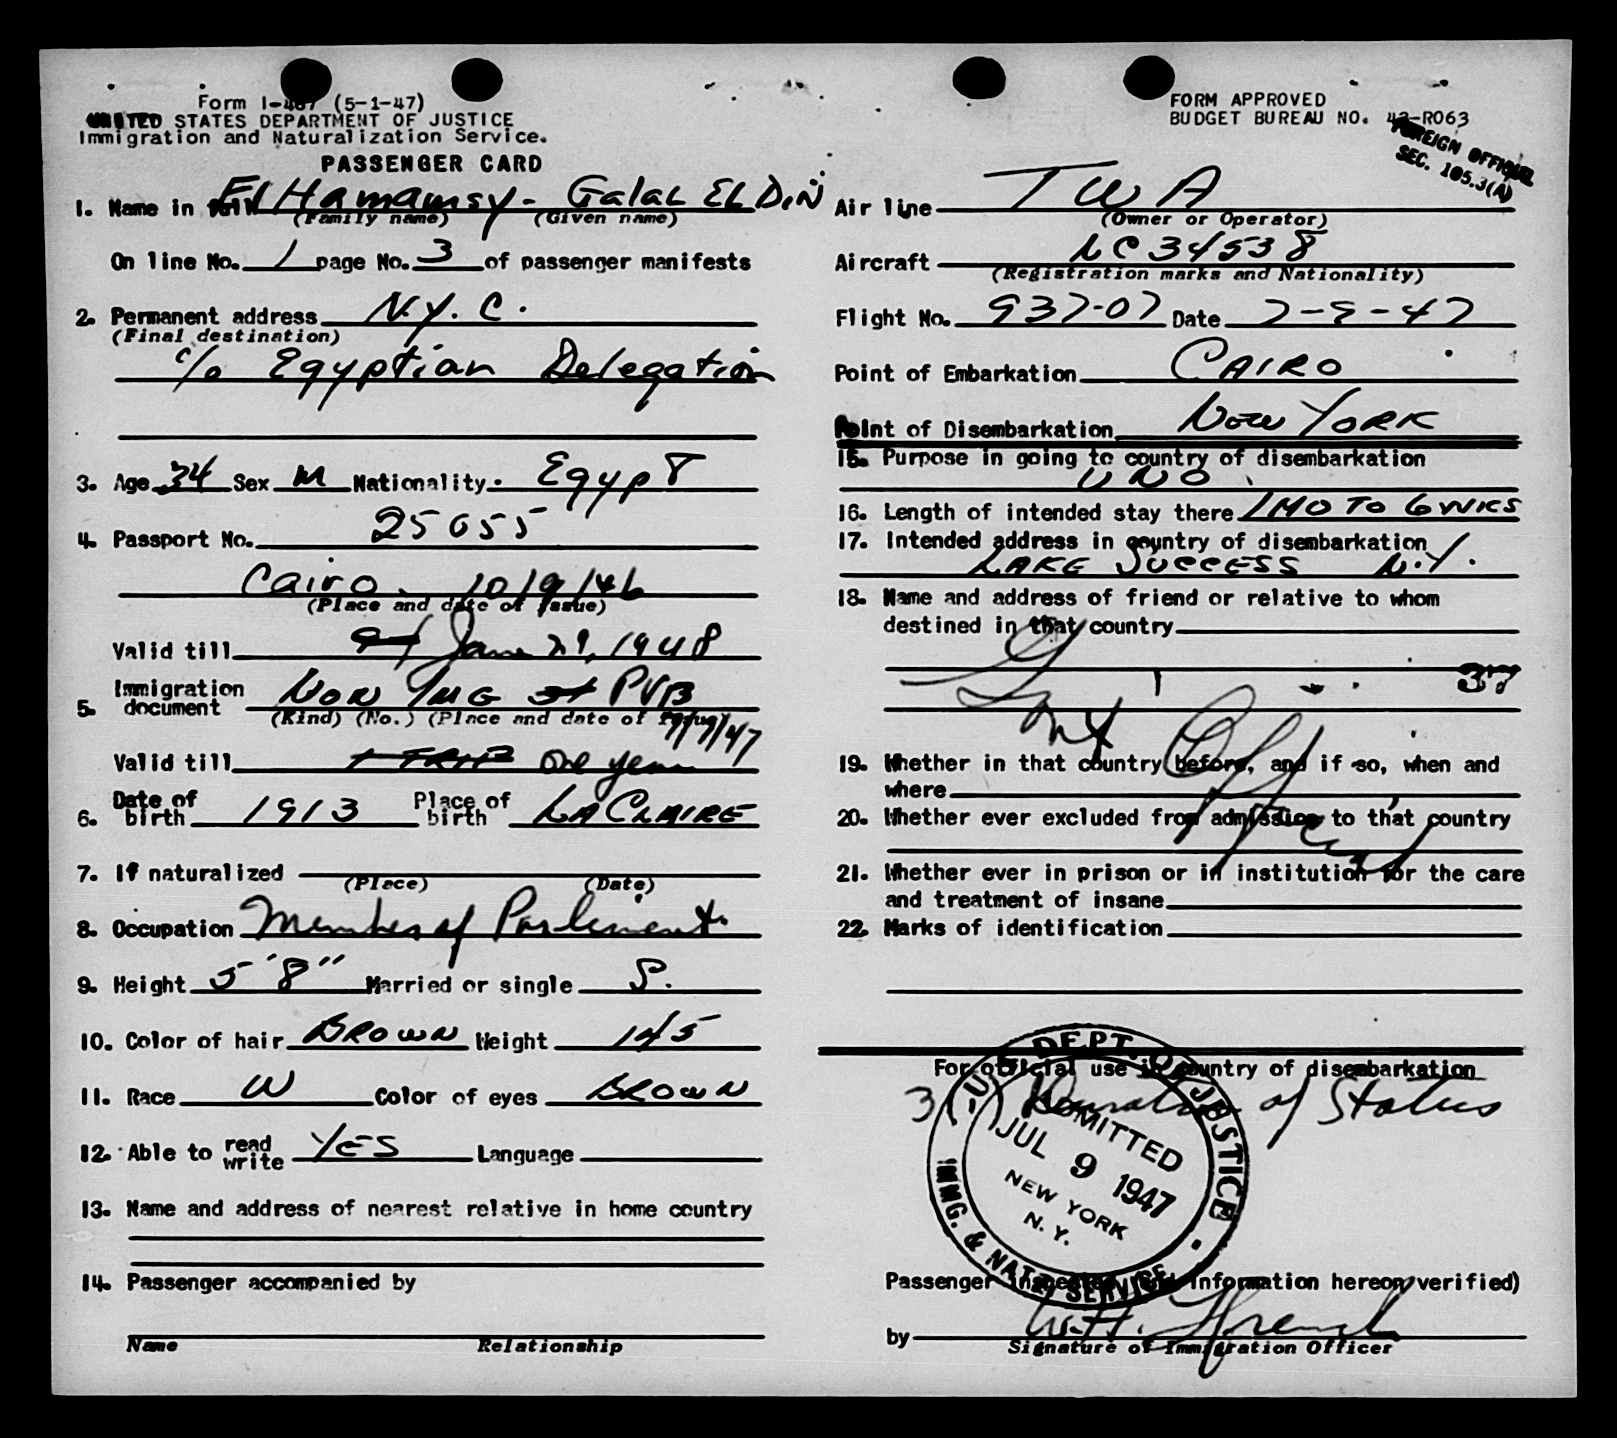 Form I-467 (5-1-47)
UNITED STATES DEPARTMENT OF JUSTICE
Immigration and Naturalization Service.
PASSENGER CARD
FORM APPROVED
BUDGET BUREAU NO. 43-R063
FOREIGN OFFICIAL
SEC. 105.3(A)
1. Name in full El Hamamsy - Galal EL Din
(Family name) (Given name)
On line No. 1 page No. 3 of passenger manifests
2. Permanent address N.Y.C.
(Final destination)
c/o Egyptian Delegation
3. Age 34 Sex M Nationality. Egypt
4. Passport No. 25055
Cairo. 10/9/46
(Place and date of issue)
Valid till Jan 29, 1948
Immigration
5. document Non Img PVB
(Kind) (No.) (Place and date of issue)
7/7/47
Valid till 1 TRIP One year
6. Date of birth 1913 Place of birth LA CLAIRE
7. If naturalized
(Place) (Date)
8. Occupation Member of Parliment.
9. Height 5'8" Married or single S.
10. Color of hair BROWN Weight 145
11. Race W Color of eyes BROWN
12. Able to read write YES Language
13. Name and address of nearest relative in home country
14. Passenger accompanied by
Name Relationship
Air line TWA
(Owner or Operator)
Aircraft NC 34538
(Registration marks and Nationality)
Flight No. 937-07 Date 7-9-47
Point of Embarkation CAIRO
Point of Disembarkation NEW YORK
15. Purpose in going to country of disembarkation
UNO.
16. Length of intended stay there 1 MO TO 6 WKS
17. Intended address in country of disembarkation
LAKE SUCCESS N.Y.
18. Name and address of friend or relative to whom
destined in that country
37
19. Whether in that country before, and if so, when and
where
20. Whether ever excluded from admission to that country
21. Whether ever in prison or in institution for the care
and treatment of insane
22. Marks of identification
For official use in country of disembarkation
3 (1) Duration of Status
U.S. DEPT. OF JUSTICE
ADMITTED
JUL 9 1947
NEW YORK
N. Y.
IMMG. & NATZ. SERVICE
Passenger inspected (and information hereon verified)
by W.H. French
Signature of Immigration Officer